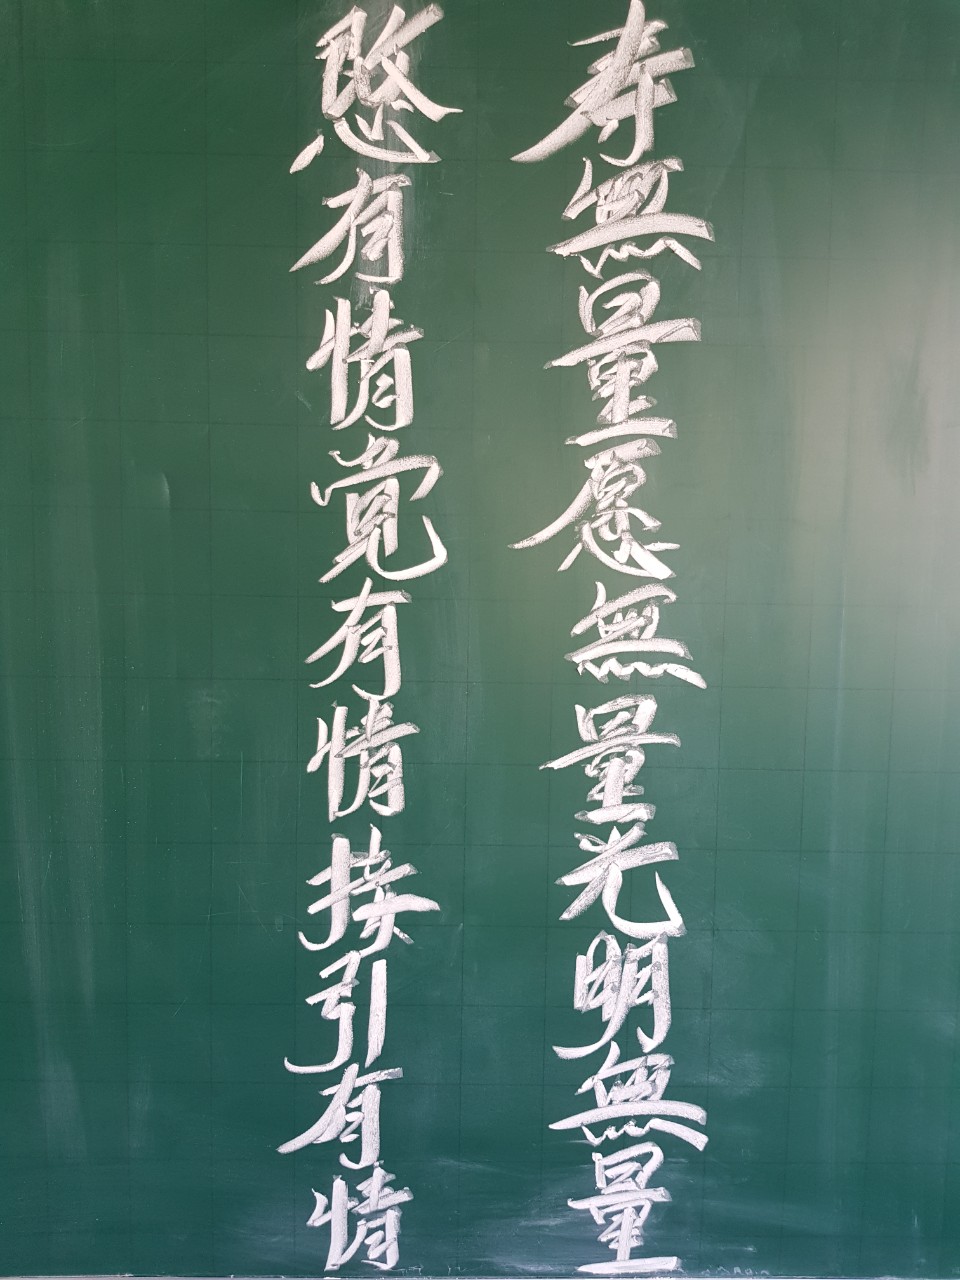 寿無量愿無量光明無量
愍有情觉有情接引有情